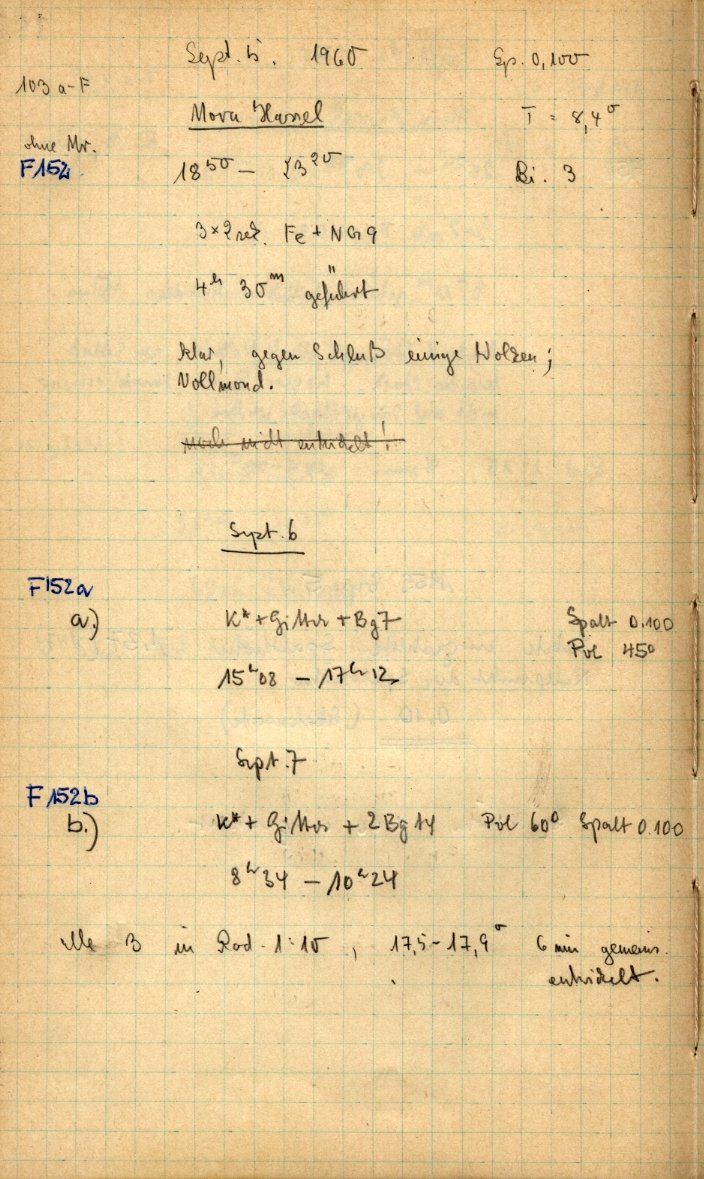 Sept. 5. 1960 Sp. 0,100
103 a-F
Nova Hassel T = 8,4°
ohne Nr.
F152 18⁵⁰ – 23²⁰ Bi. 3
3×2 sek. Fe + NG 9
4ʰ 30ᵐ geführt
klar, gegen Schluß einige Wolken;
Vollmond.
noch nicht entwickelt!
Sept. 6
F152a
a.) K* + Gitter + Bg7 Spalt 0.100
Pol 45°
15ʰ08 – 17ʰ12
Sept. 7
F152b
b.) K* + Gitter + 2Bg14 Pol 60° Spalt 0.100
8ʰ34 – 10ʰ24
Alle 3 in Rod. 1:10, 17,5–17,9° 6 min gemeins.
entwickelt.